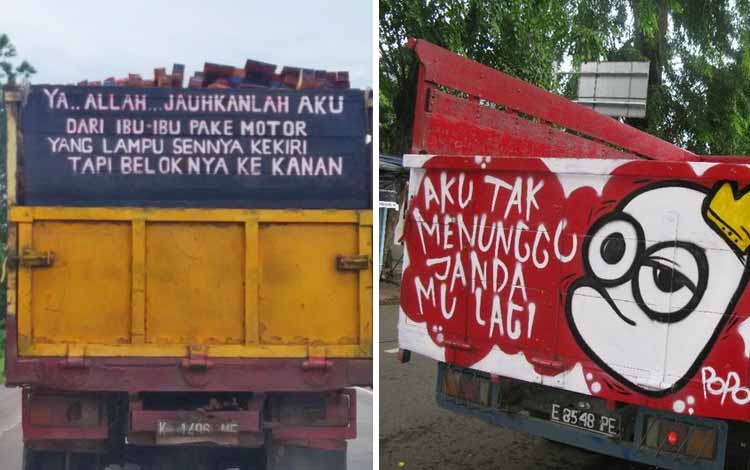 YA.. ALLAH... JAUHKANLAH AKU
DARI IBU-IBU PAKE MOTOR
YANG LAMPU SENNYA KEKIRI
TAPI BELOKNYA KE KANAN
AKU TAK
MENUNGGU
JANDA
MU LAGI
POPO
E 8548 PE